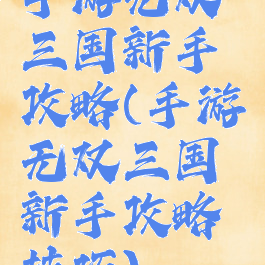 手游无双
三国新手
攻略(手游
无双三国
新手攻略
技巧)